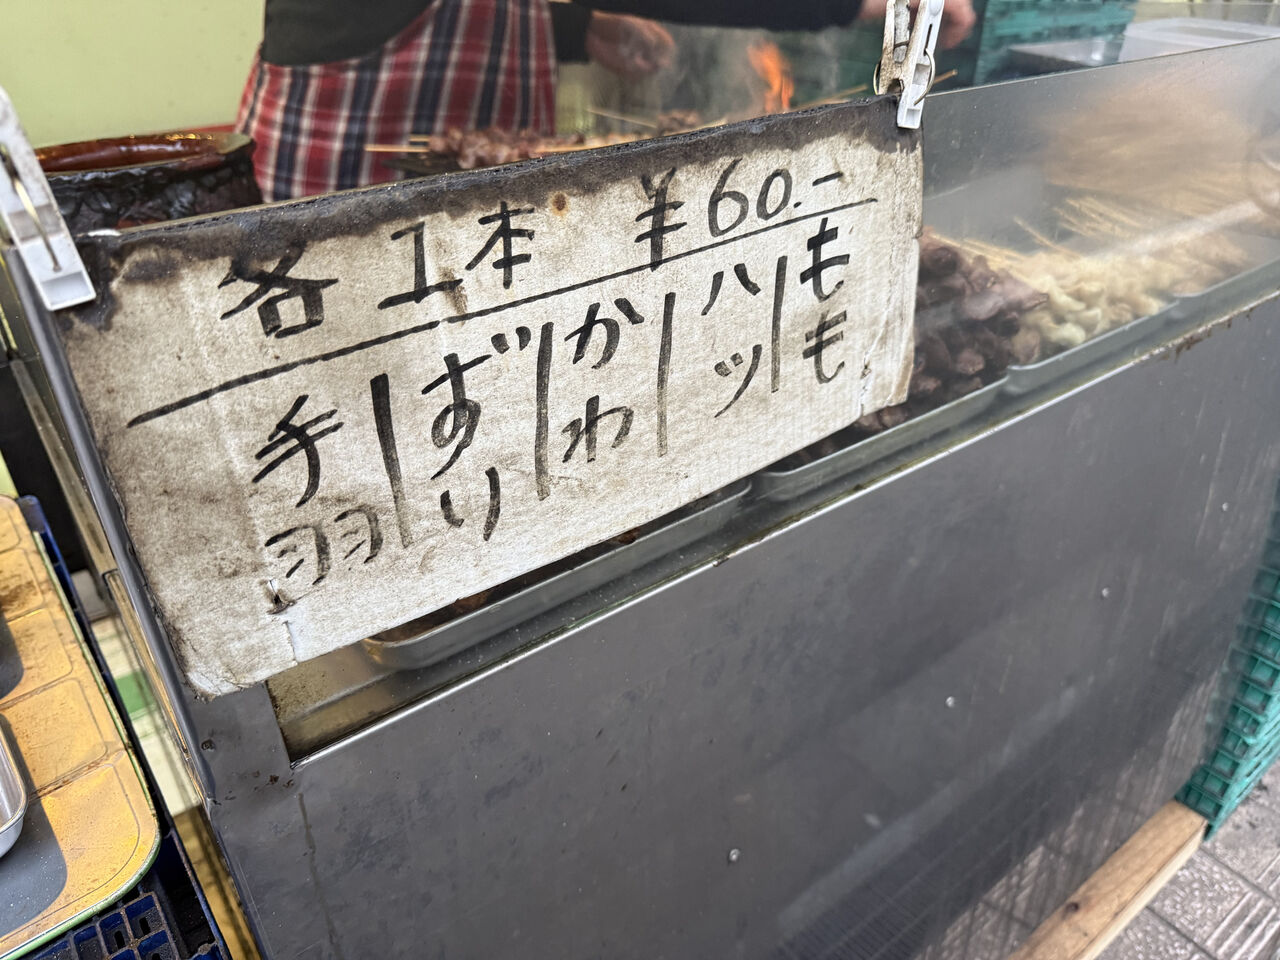 各1本 ¥60.-
もも
ハツ
かわ
ずり
手羽